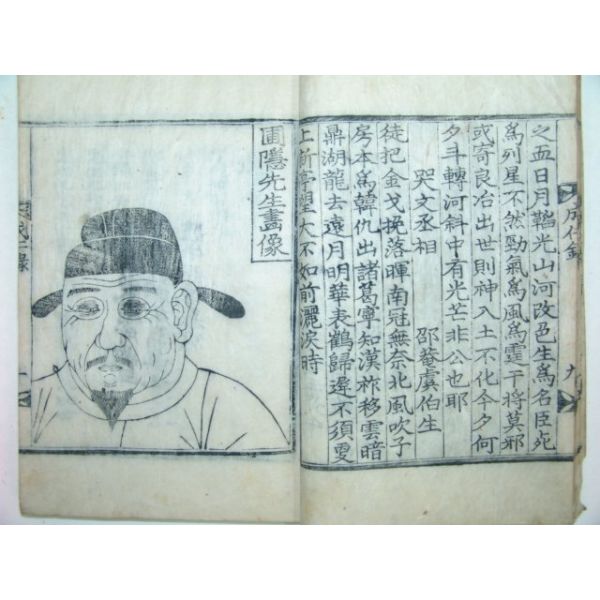 成仁錄
九
之血日月韜光山河改色生爲名臣死
爲列星不然勁氣爲風爲霆干將莫邪
或寄良冶出世則神入土不化今夕何
夕斗轉河斜中有光芒非公也耶
哭文丞相　邵菴虞伯生
徒把金戈挽落暉南冠無奈北風吹子
房本爲韓仇出諸葛寧知漢祚移雲暗
鼎湖龍去遠月明華表鶴歸遲不須更
上新亭望大不如前灑淚時
圃隱先生畫像